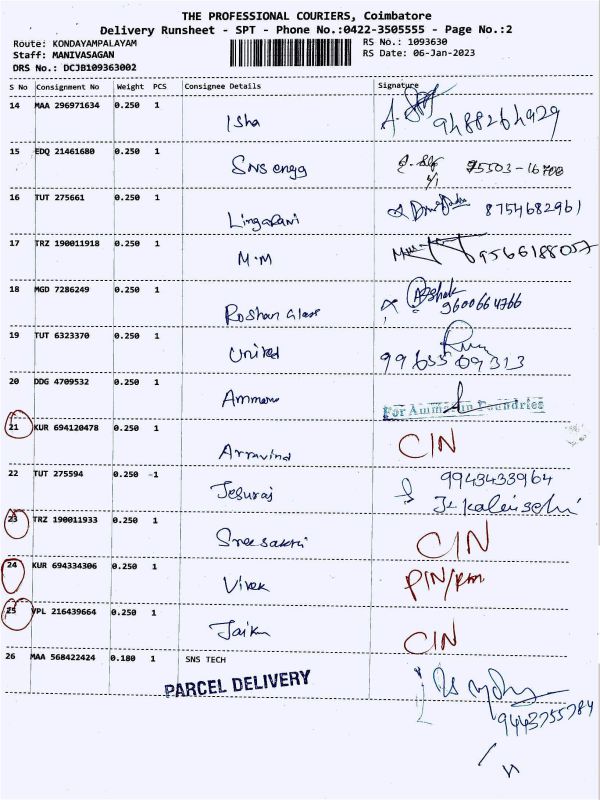 THE PROFESSIONAL COURIERS, Coimbatore
Delivery Runsheet - SPT - Phone No.:0422-3505555 - Page No.:2
Route: KONDAYAMPALAYAM RS No.: 1093630
Staff: MANIVASAGAN RS Date: 06-Jan-2023
DRS No.: DCJB109363002
S No Consignment No Weight PCS Consignee Details Signature
14 MAA 296971634 0.250 1 Isha 9488264929
15 EDQ 21461680 0.250 1 SNS engg 75503-16700
16 TUT 275661 0.250 1 Lingarani 8754682961
17 TRZ 190011918 0.250 1 M.M 9566188057
18 MGD 7286249 0.250 1 Roshan Glass Ashok
9600664766
19 TUT 6323370 0.250 1 United 9965509313
20 DDG 4709532 0.250 1 For Foundries
21 KUR 694120478 0.250 1 Arravind CIN
22 TUT 275594 0.250 -1 Jesuraj 9943433964
23 TRZ 190011933 0.250 1 CIN
24 KUR 694334306 0.250 1 Vivek
25 VPL 216439664 0.250 1 CIN
26 MAA 568422424 0.180 1 SNS TECH
PARCEL DELIVERY